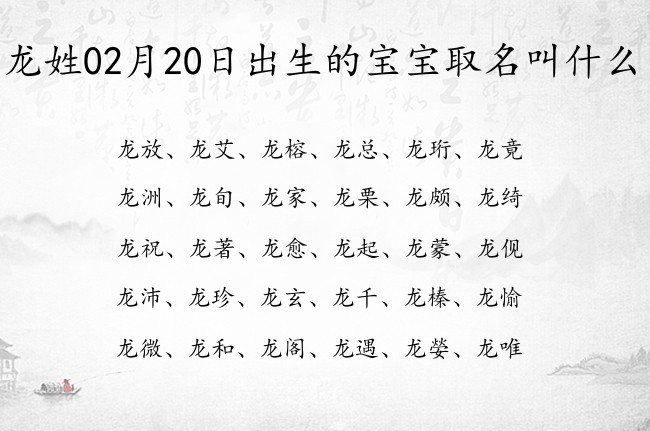 龙姓02月20日出生的宝宝取名叫什么
龙放、龙艾、龙榕、龙总、龙珩、龙竟
龙洲、龙旬、龙家、龙栗、龙颇、龙绮
龙祝、龙著、龙愈、龙起、龙蒙、龙伣
龙沛、龙珍、龙玄、龙千、龙榛、龙愉
龙微、龙和、龙阁、龙遇、龙婴、龙唯